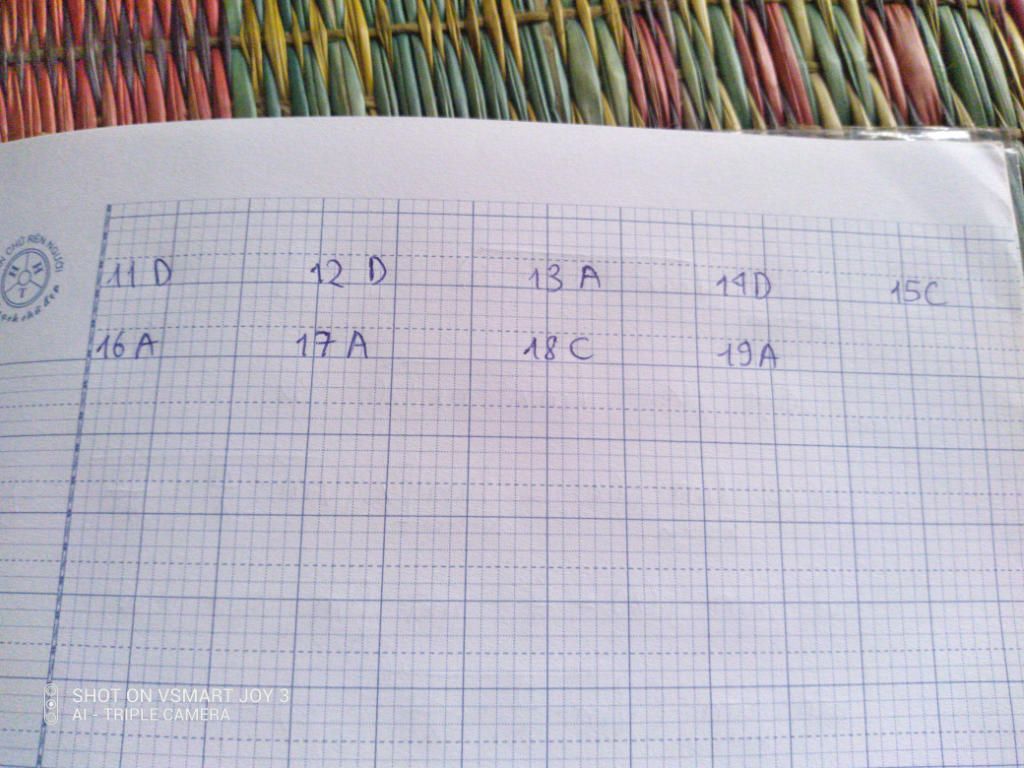 N CHỮ RÈN NGƯỜI
H H
T
11 D 12 D 13 A 14 D 15 C
16 A 17 A 18 C 19 A
SHOT ON VSMART JOY 3
AI - TRIPLE CAMERA